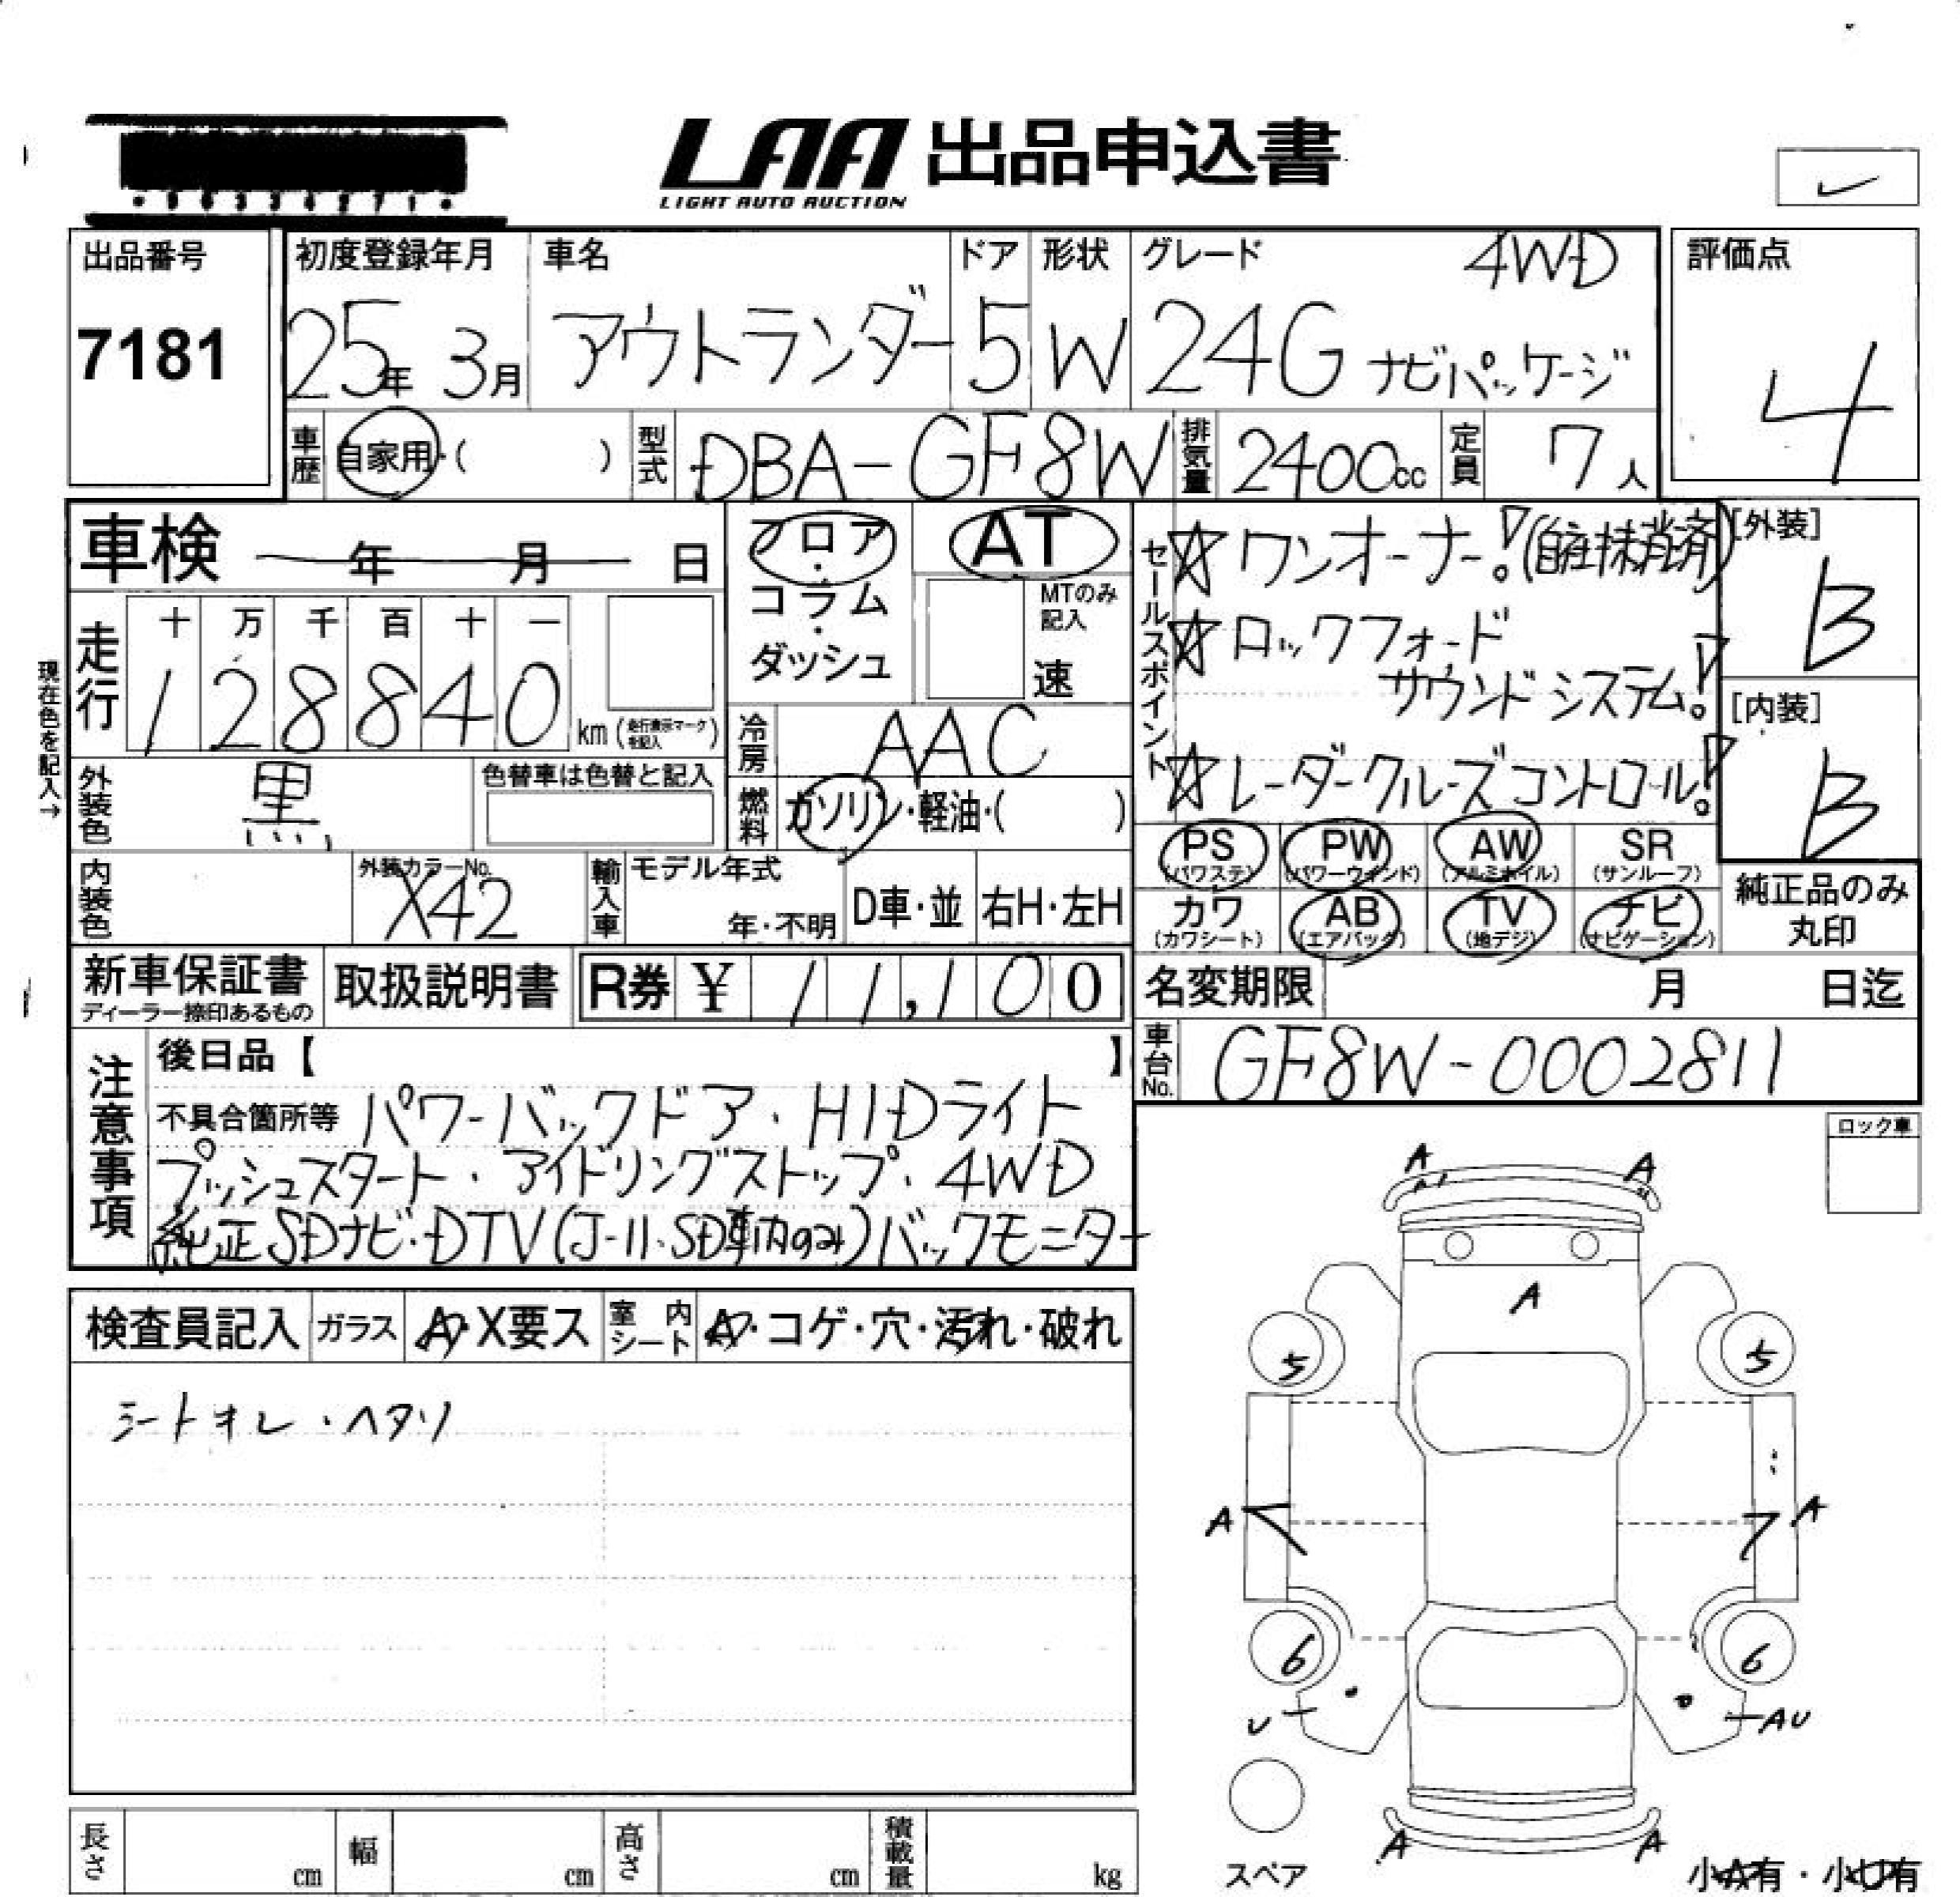 LAA 出品申込書
LIGHT AUTO AUCTION
出品番号
7181
初度登録年月
25年 3月
車名
アウトランダー
ドア
5
形状
W
グレード 4WD
24G ナビパッケージ
評価点
4
車歴 自家用・( )
型式 DBA-GF8W
排気量 2400cc
定員 7人
車検 年 月 日
フロア・コラム・ダッシュ
AT
MTのみ記入
速
セールスポイント
☆ワンオーナー!(自社抹消済)
☆ロックフォード
サウンドシステム!
☆レーダークルーズコントロール!
[外装]
B
[内装]
B
現在色を記入→
走行
十 万 千 百 十 一
1 2 8 8 4 0 km (走行表示マークを記入)
冷房 AAC
外装色 黒
色替車は色替と記入
燃料 ガソリン・軽油・( )
PS (パワステ)
PW (パワーウインド)
AW (アルミホイル)
SR (サンルーフ)
カワ (カワシート)
AB (エアバック)
TV (地デジ)
ナビ (ナビゲーション)
純正品のみ
丸印
内装色
外装カラーNo.
X42
輸入車
モデル年式
年・不明
D車・並
右H・左H
新車保証書
ディーラー捺印あるもの
取扱説明書
R券 ¥ 11,100
名変期限 月 日迄
車台No. GF8W-0002811
注意事項
後日品【 】
不具合箇所等 パワーバックドア・HIDライト
プッシュスタート・アイドリングストップ・4WD
純正SDナビ・DTV(J-11・SD車内のみ)バックモニター
ロック車
検査員記入
ガラス A・X要ス
室内シート A・コゲ・穴・汚れ・破れ
シートオレ・ヘタリ
A A
A
5 5
A A
6 6
U AU
A A
スペア
小A有・小U有
長さ cm
幅 cm
高さ cm
積載量 kg